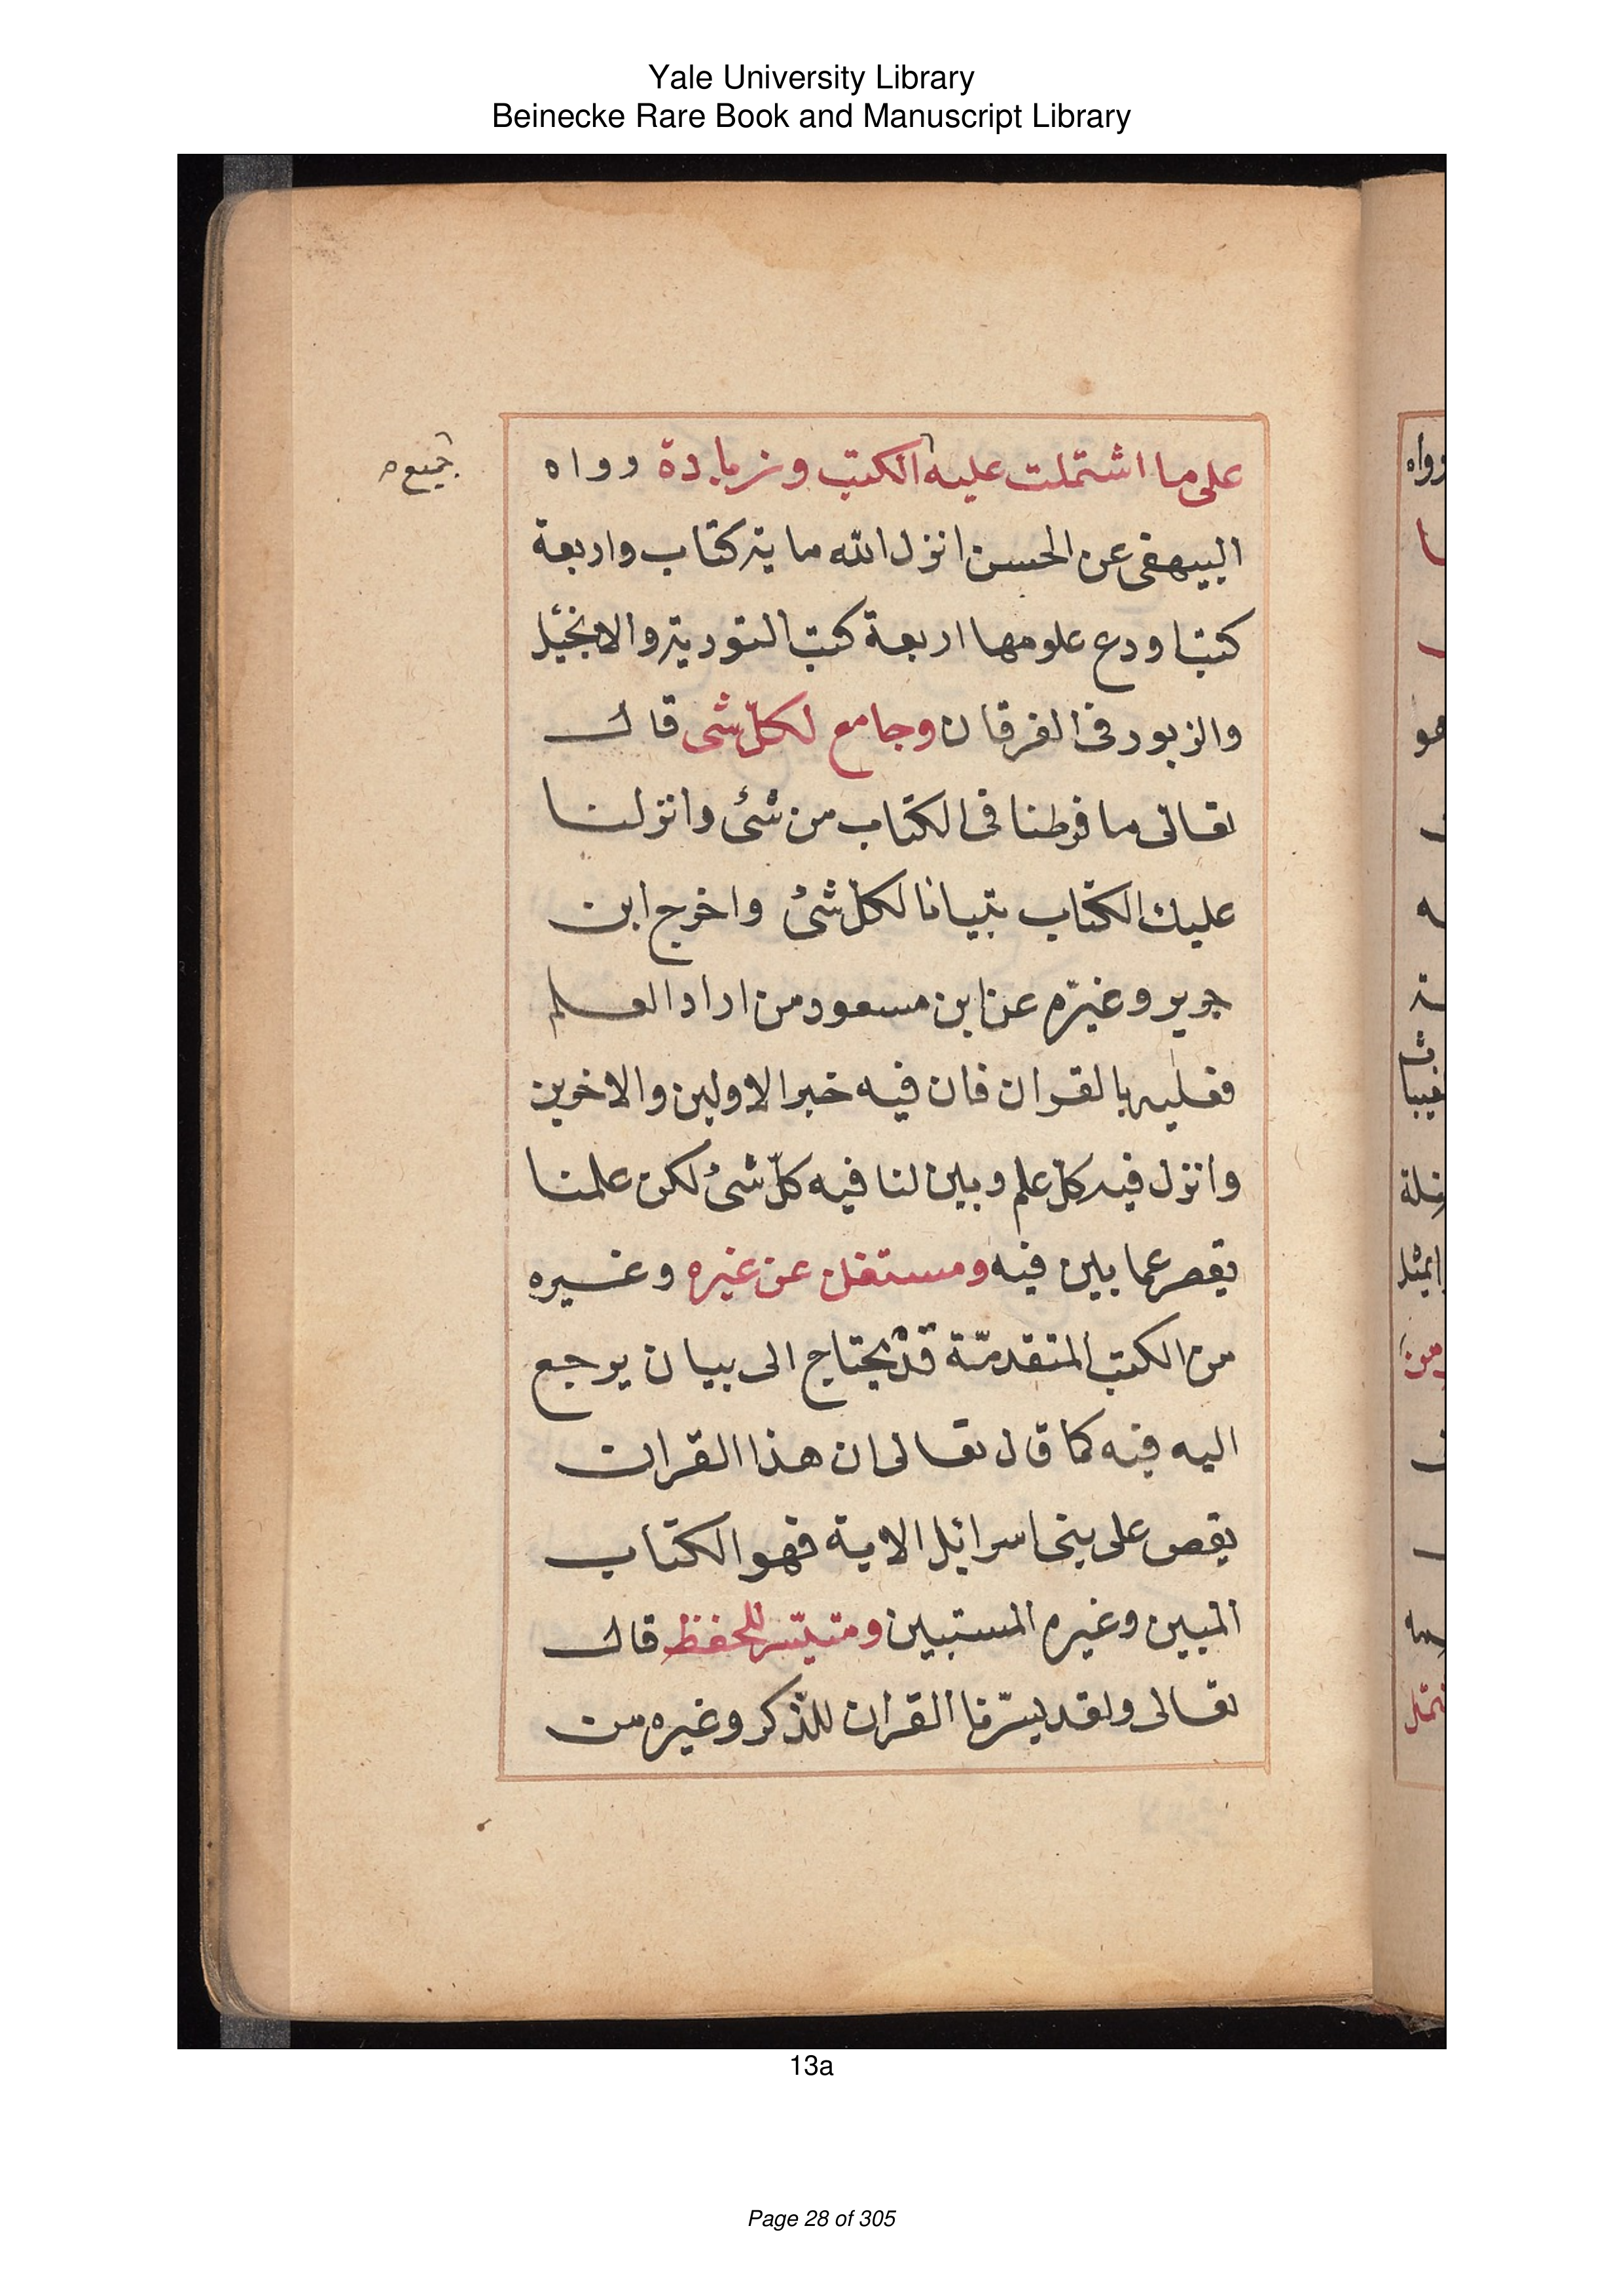 Yale University Library
Beinecke Rare Book and Manuscript Library
على ما اشتملت عليه الكتب وزيادة رواه
جميع
البيهقى عن الحسن انزل الله ماية كتاب واربعة
كتب اودع علومها اربعة كتب التورية والانجيل
والزبور فى الفرقان وجامع لكلّ شى قال
تعالى ما فرطنا فى الكتاب من شئ وانزلنا
عليك الكتاب تبيانا لكلّ شئ واخرج ابن
جرير وغيره عن ابن مسعود من اراد العلم
فعليه بالقران فان فيه خبر الاولين والاخرين
وانزل فيه كلّ علم وبين لنا فيه كلّ شئ لكن علمنا
يقصر عما بين فيه ومستغن عن غيره وغيره
من الكتب المتقدمة قد يحتاج الى بيان يرجع
اليه فيه كما قال تعالى ان هذا القران
يقص على بنى اسرائيل الاية فهو الكتاب
المبين وغيره المستبين ومتيسّر للحفظ قال
تعالى ولقد يسّرنا القران للذّكر وغيره من
13a
Page 28 of 305